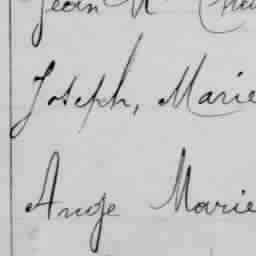 Jean
Joseph, Marie
Ange Marie